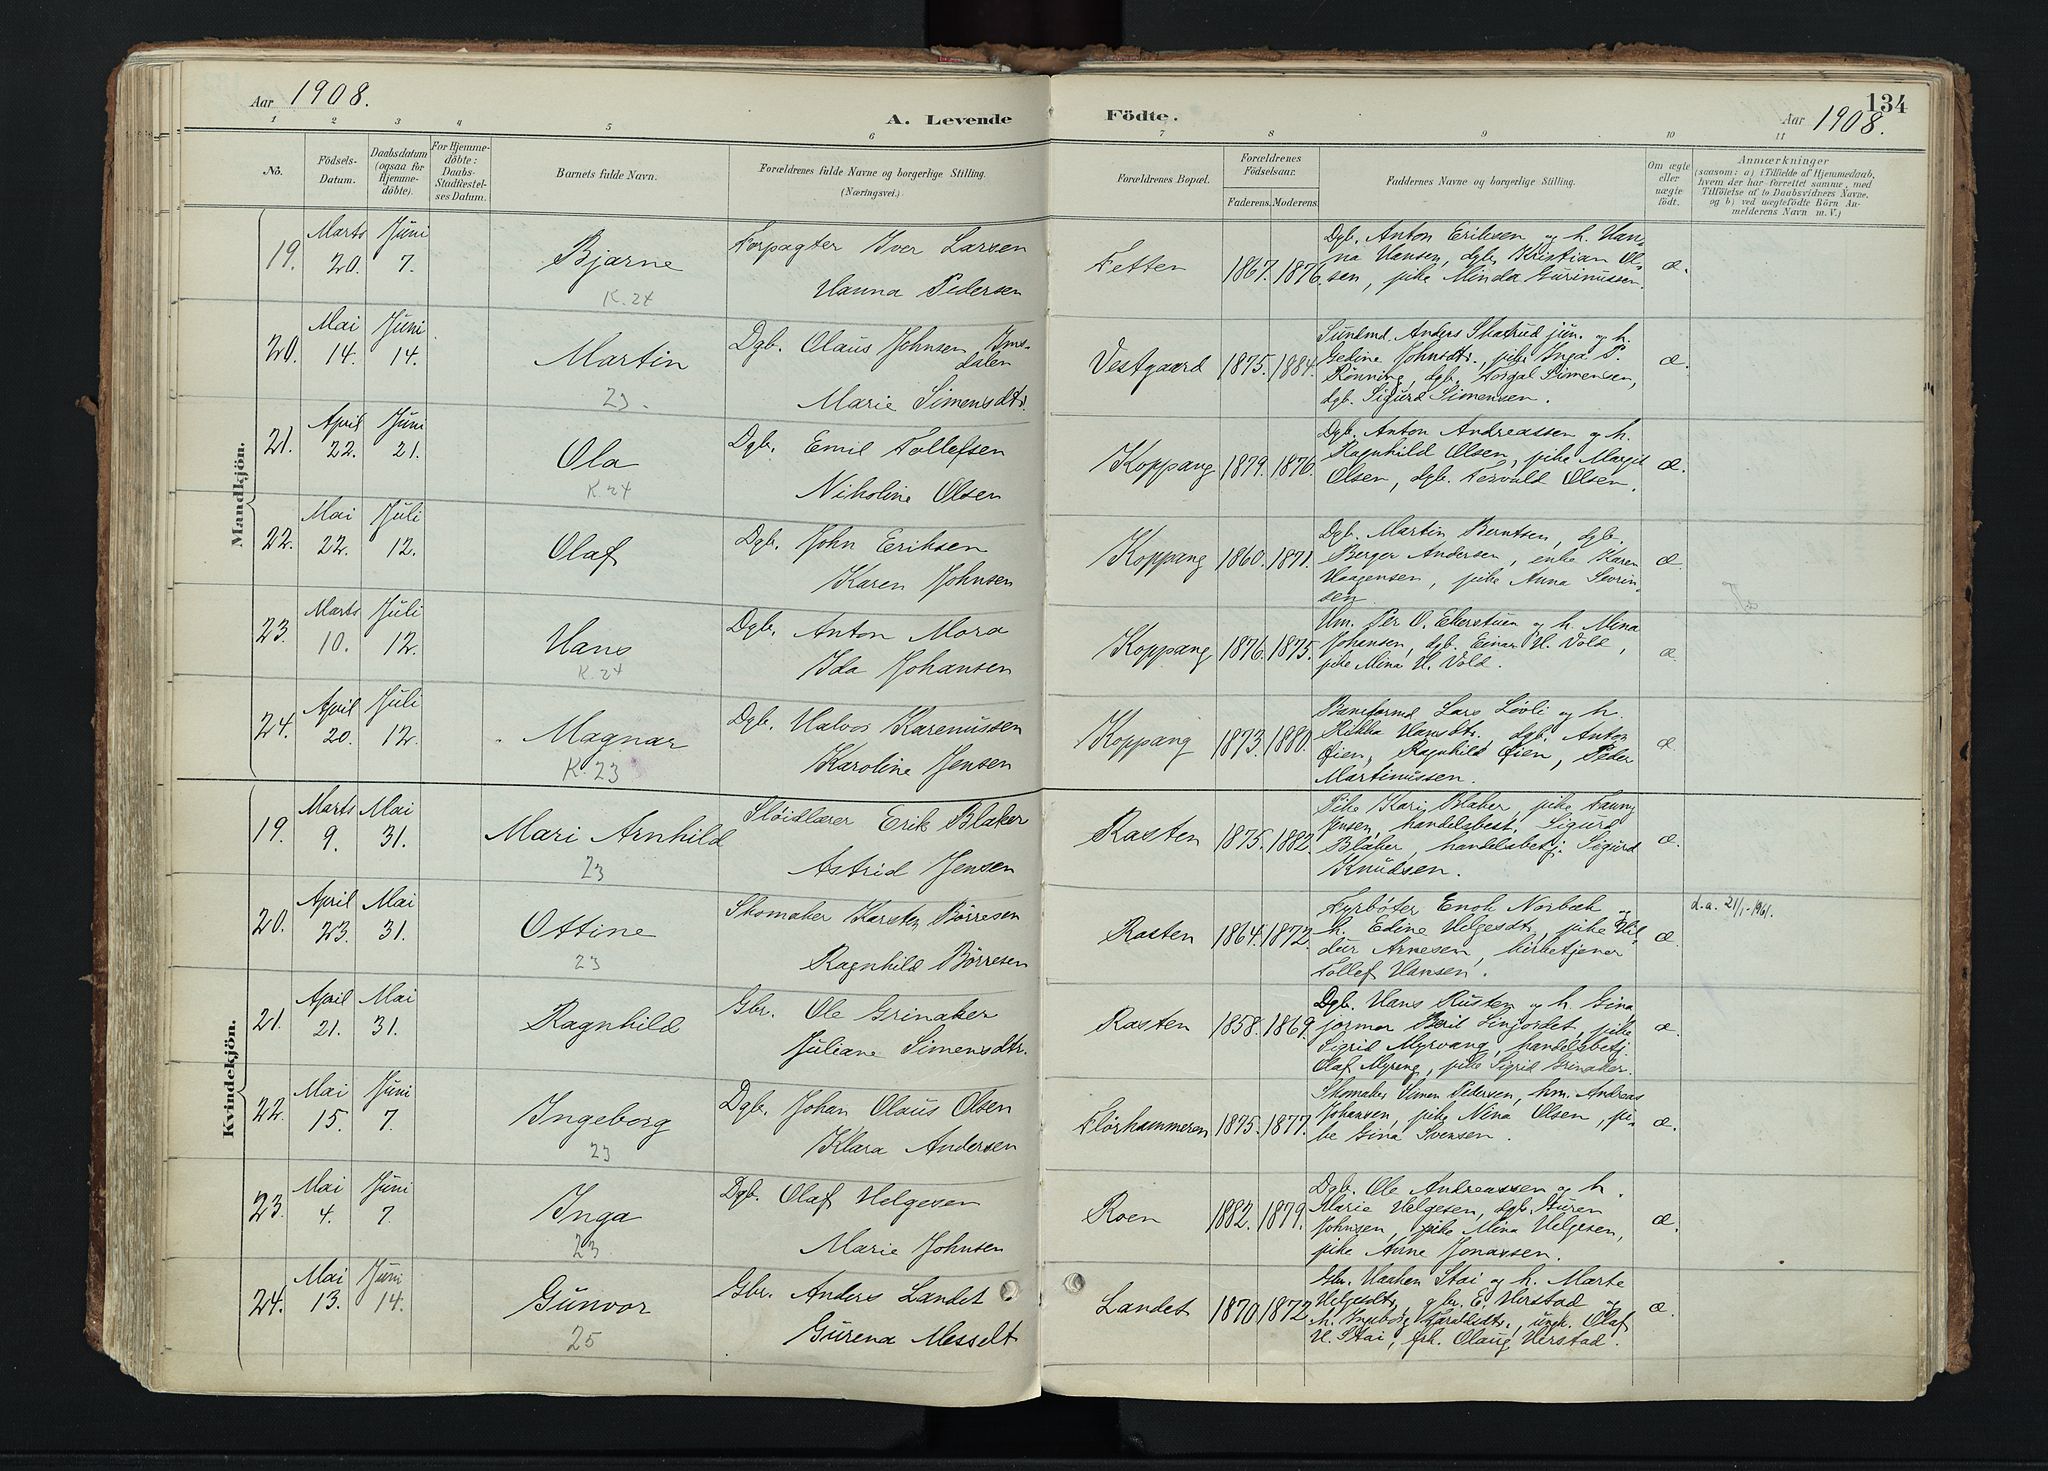 Aar 1908.
A. Levende Födte.
134
Aar 1908.
1 2 3 4 5 6 7 8 9 10 11
No.
Födsels-
Datum.
Daabsdatum
(ogsaa for
Hjemme-
döbte).
For Hjemme-
döbte:
Daabs-
Stadfæstel-
ses Datum.
Barnets fulde Navn.
Forældrenes fulde Navne og borgerlige Stilling.
(Næringsvei.)
Forældrenes Bopæl.
Forældrenes
Födselsaar.
Faderens. Moderens.
Faddernes Navne og borgerlige Stilling.
Om ægte
eller
uægte
födt.
Anmærkninger
(saasom: a) i Tilfælde af Hjemmedaab,
hvem der har forrettet samme, med
Tilföielse af to Daabsvidners Navne,
og b) ved uægtefödte Börn An-
melderens Navn m. V.)
Mandkjön.
19. Marts 20. Juni 7.
Bjarne
K. 24
Forpagter Iver Larsen
Hanna Pedersen
Fetten 1867. 1876.
Dgb. Anton Eriksen og h. Han-
na Hansen, dgb. Kristian Ol-
sen, pike Minda Gurinussen.
æ.
20. Mai 14. Juni 14.
Martin
23.
Dgb. Olaus Johnsen Ims-
dalen
Marie Simensdtr.
Vestgaard 1875. 1884.
Anders Skatrud jun. og h.
Gedine Johnsdtr., pike Inga P.
Rönning, dgb. Torgal Simensen,
dgb. Sigurd Simensen.
æ.
21. April 22. Juni 21.
Ola
K. 24
Dgb. Emil Tollefsen
Nikoline Olsen
Koppang 1879. 1876.
Dgb. Anton Andreassen og h.
Ragnhild Olsen, pike Margit
Olsen, dgb. Torvald Olsen.
æ.
22. Mai 22. Juli 12.
Olaf
Dgb. John Eriksen
Karen Johnsen
Koppang 1860. 1871.
Dgb. Martin Berntsen, dgb.
Berger Andersen, enke Karen
Haagensen, pike Anna Sevrin-
sen
æ.
23. Marts 10. Juli 12.
Hans
K. 24
Dgb. Anton Mora
Ida Johansen
Koppang 1876. 1875.
Hm. Per O. Ekerstuen og h. Mina
Johansen, dgb. Einar H. Vold,
pike Mina H. Vold.
æ.
24. April 20. Juli 12.
Magnar
K. 23
Dgb. Halvor Karenussen
Karoline Jensen
Koppang 1873. 1880.
Baneformd Lars Lövli og h.
Rikka Hansdtr., dgb. Anton
Öien, Ragnhild Öien, Peder
Martinussen.
æ.
Kvindekjön.
19. Marts 9. Mai 31.
Mari Arnhild
23
Slöidlærer Erik Blaker
Astrid Jensen
Rasten 1875. 1882.
Pike Kari Blaker, pike Fanny
Jensen, handelsbest. Sigurd
Blaker, handelsbetj. Sigurd
Knudsen.
æ.
20. April 23. Mai 31.
Ottine
23
Skomaker Karsten Börresen
Ragnhild Börresen
Rasten 1864. 1872.
Fyrböter Enok Norbæk og
h. Edine Helgesdtr, pike Hil-
dur Arnesen, birbetjener
Tollef Hansen.
æ.
d.a. 21/1-1961.
21. April 21. Mai 31.
Ragnhild
Gbr. Ole Grinaker
Juliane Simensdtr.
Rasten 1858. 1869.
Dgb. Hans Rusten og h. Gina,
jormor Beril Sinjordet, pike
Sigrid Myrvang, handelsbetj.
Olaf Myreng, pike Sigrid Grinaker.
æ.
22. Mai 15. Juni 7.
Ingeborg
23
Dgb. Johan Olaus Olsen
Klara Andersen
Flörhammeren 1875. 1877.
Skomaker Simen Pedersen, hm. Andreas
Johansen, pike Nina Olsen, pi-
ke Gina Svensen.
æ.
23. Mai 4. Juni 7.
Inga
23.
Dgb. Olaf Helgesen
Marie Johnsen
Roen 1882. 1879.
Dgb. Ole Andreassen og h.
Marie Helgesen, dgb. Guren
Johnsen, pike Mina Helgesen,
pike Anne Jonassen.
æ.
24. Mai 13. Juni 14.
Gunvor
25
Gbr. Anders Landet
Gurena Messelt
Landet 1870. 1872
Gbr. Haaken Stai og h. Marte
Helgesdtr, gbr. E. Herstad og
h. Ingeborg Haraldsdtr., ungk. Olaf
H. Stai, pk. Olaug Herstad.
æ.